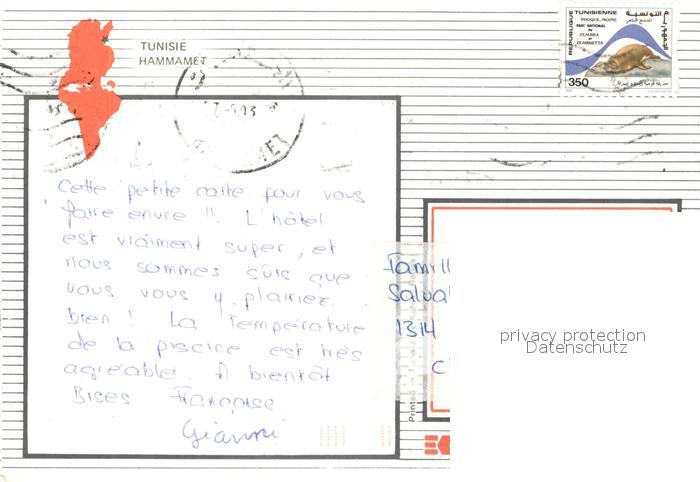 TUNISIE
HAMMAMET
REPUBLIQUE TUNISIENNE
الجمهورية التونسية
PHOQUE-MOINE
PARC NATIONAL
de
ZEMBRA
et
ZEMBRETTA
350
Cette petite carte pour vous
faire envie !!. L'hôtel
est vraiment super, et
nous sommes sûrs que
vous vous y plairiez
bien ! La Température
de la piscine est très
agréable. A bientôt
Bises Françoise
Gianni
Famill
Salva
1314
C
privacy protection
Datenschutz
Printed in